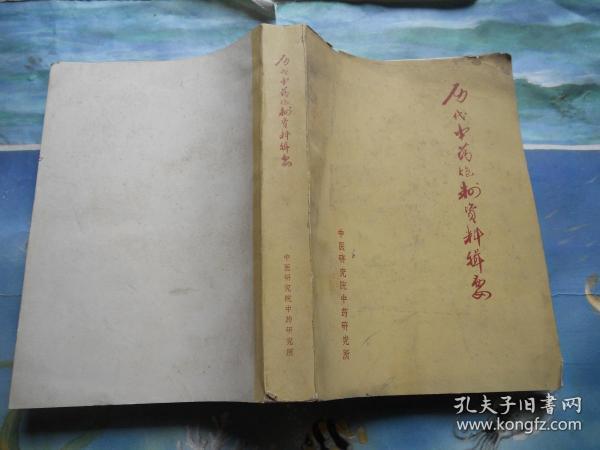 历代中药炮制资料辑要
中医研究院中药研究所
历代中药炮制资料辑要
中医研究院中药研究所
孔夫子旧书网
www.kongfz.com